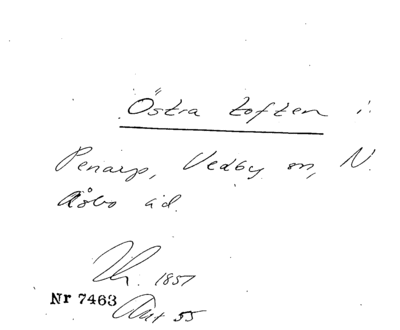 Östra toften i
Penarp, Vedby sn, N.
Åsbo hd.
1851
Nr 7463
Akt 55